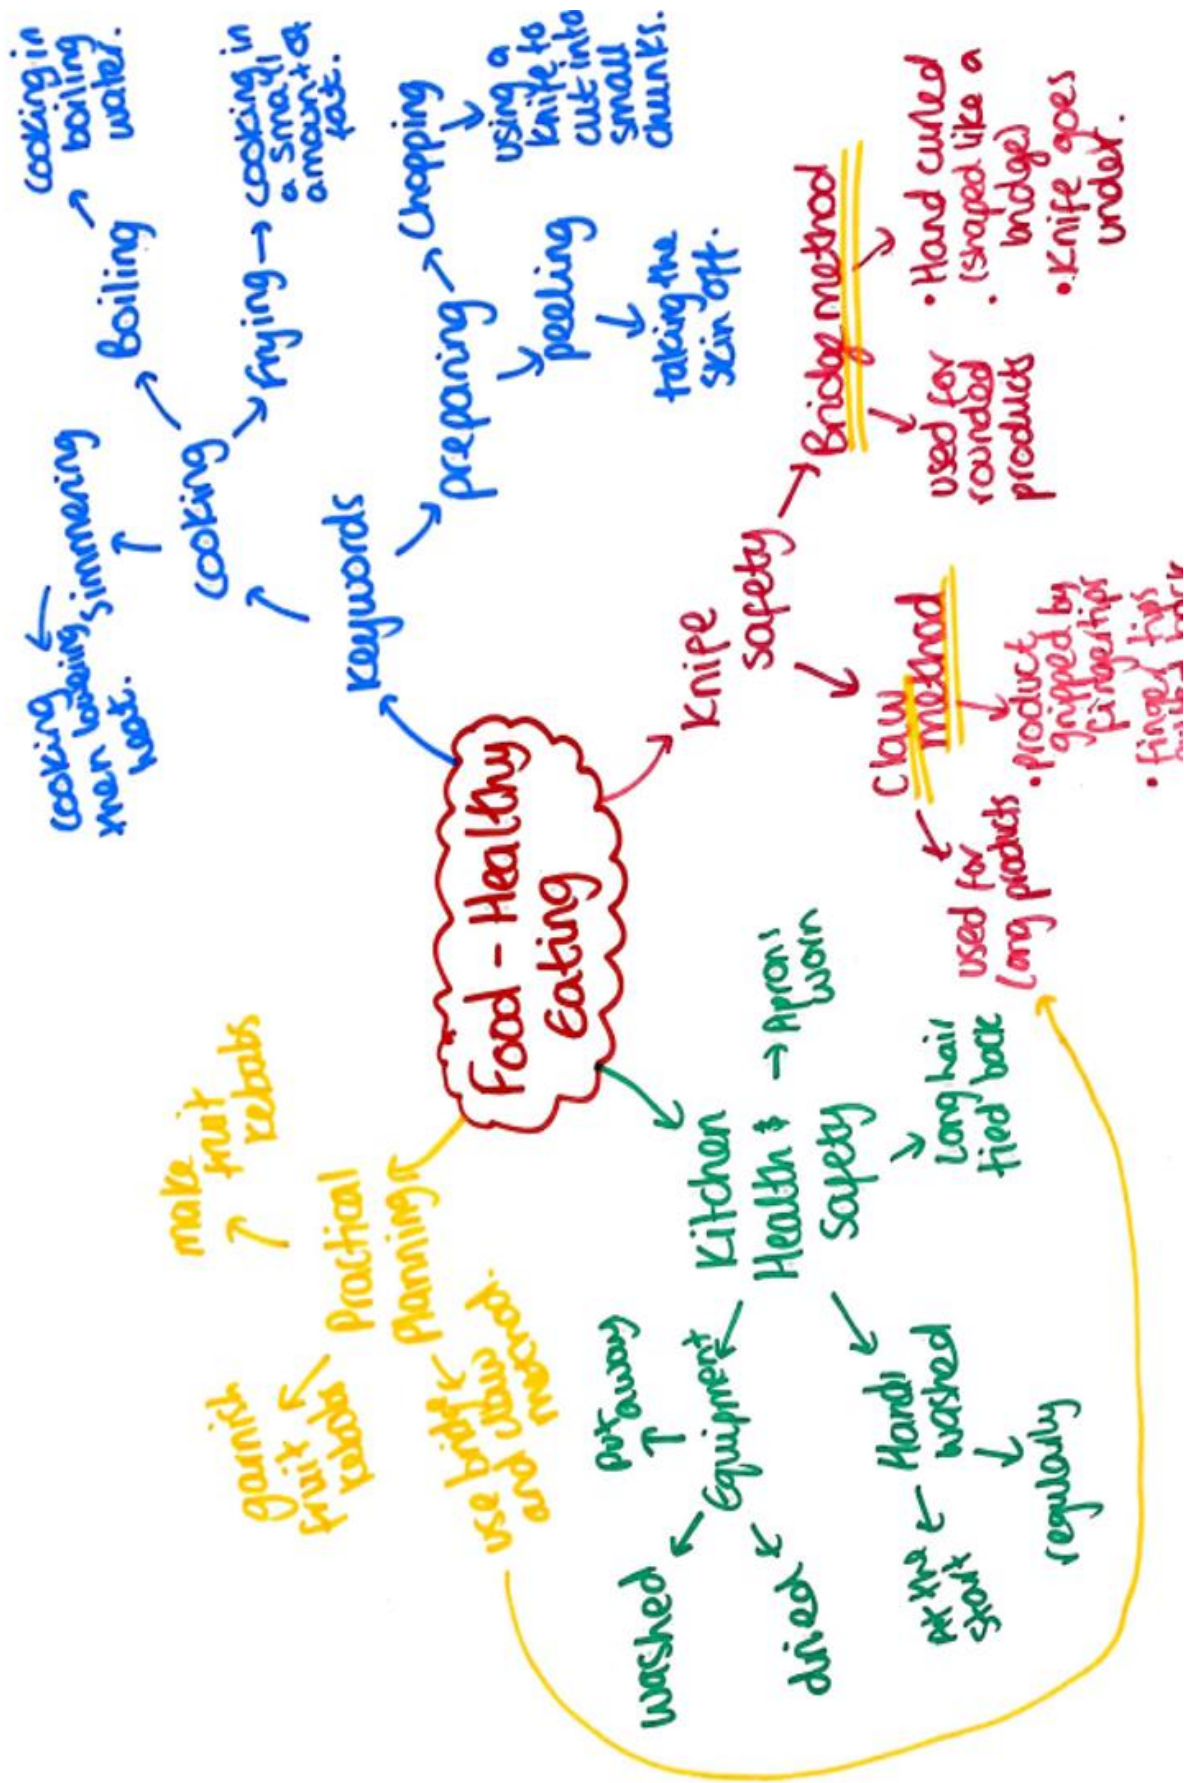 Food - Healthy
Eating
Keywords
cooking
simmering
cooking
then lowering
heat.
Boiling
cooking in
boiling
water.
frying
cooking in
a small
amount of
fat.
preparing
Chopping
using a
knife to
cut into
small
chunks.
peeling
taking the
skin off.
Knife
safety
Bridge method
• Hand curled
• (shaped like a
bridge)
• Knife goes
under.
used for
rounded
products
Claw
method
• product
gripped by
fingertips
• finger tips
used for
long products
Kitchen
Health &
Safety
Aprons
worn
Long hair
tied back
Hands
washed
regularly
At the
start
Equipment
put
away
washed
dried
Practical
Planning
make
fruit
kebabs
garnish
fruit
kebabs
use bridge
and claw
method.